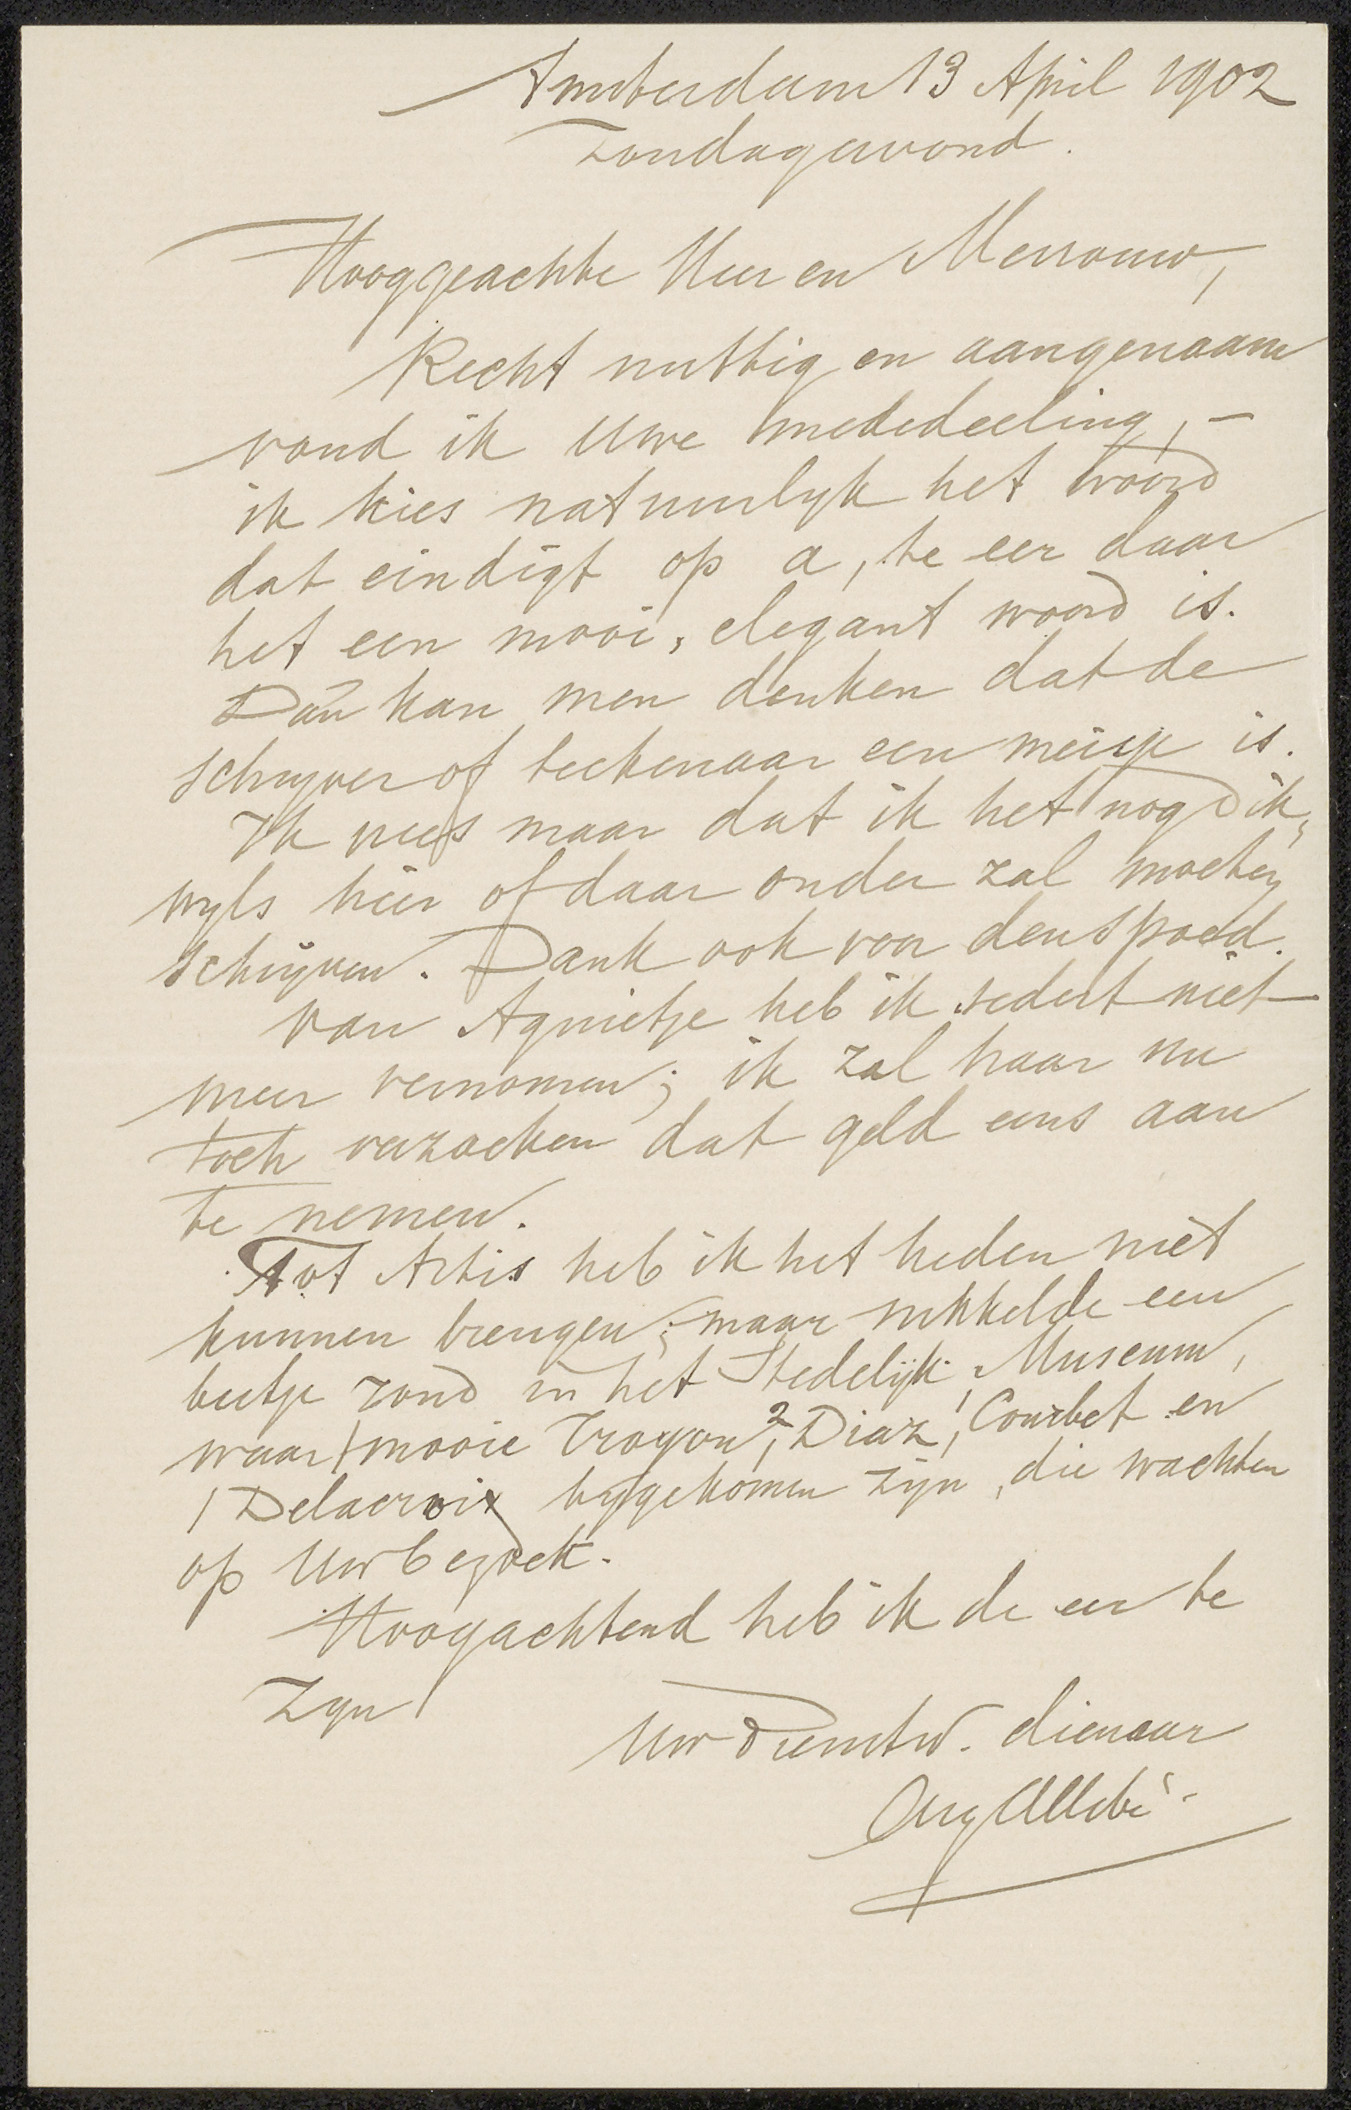 Amsterdam 13 April 1902
Zondagavond.
Hooggeachte Heer en Mevrouw,
Recht nuttig en aangenaam
vond ik Uwe mededeeling, –
ik kies natuurlyk het woord
dat eindigt op a, te eer daar
het een mooi, elegant woord is.
Dàn kan men denken dat de
schryver of teekenaar een meisje is.
Ik vrees maar dat ik het nog dik„
wyls hier of daar onder zal moeten
schryven. Dank ook voor den spoed.
Van Agnietje heb ik sedert niet
meer vernomen; ik zal haar nu
toch verzoeken dat geld eens aan
te nemen.
Tot Artis heb ik het heden niet
kunnen brengen; maar sukkelde een
beetje rond in het Stedelijk Museum,
waar 1 mooie Troyon, 2 Diaz, 1 Courbet en
1 Delacroix bygekomen zijn, die wachten
op Uw bezoek.
Hoogachtend heb ik de eer te
zyn
Uw dienstw. dienaar
Aug Allebé.